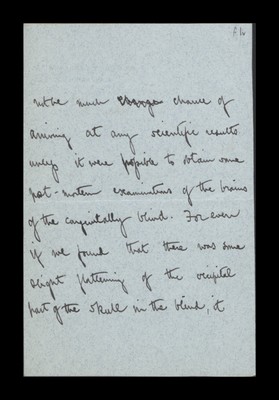 not be much chance of
arriving at any scientific results
unless it were possible to obtain some
post-mortem examinations of the brains
of the congenitally blind. For even
if we found that there was some
slight flattening of the occipital
part of the skull in the blind, it